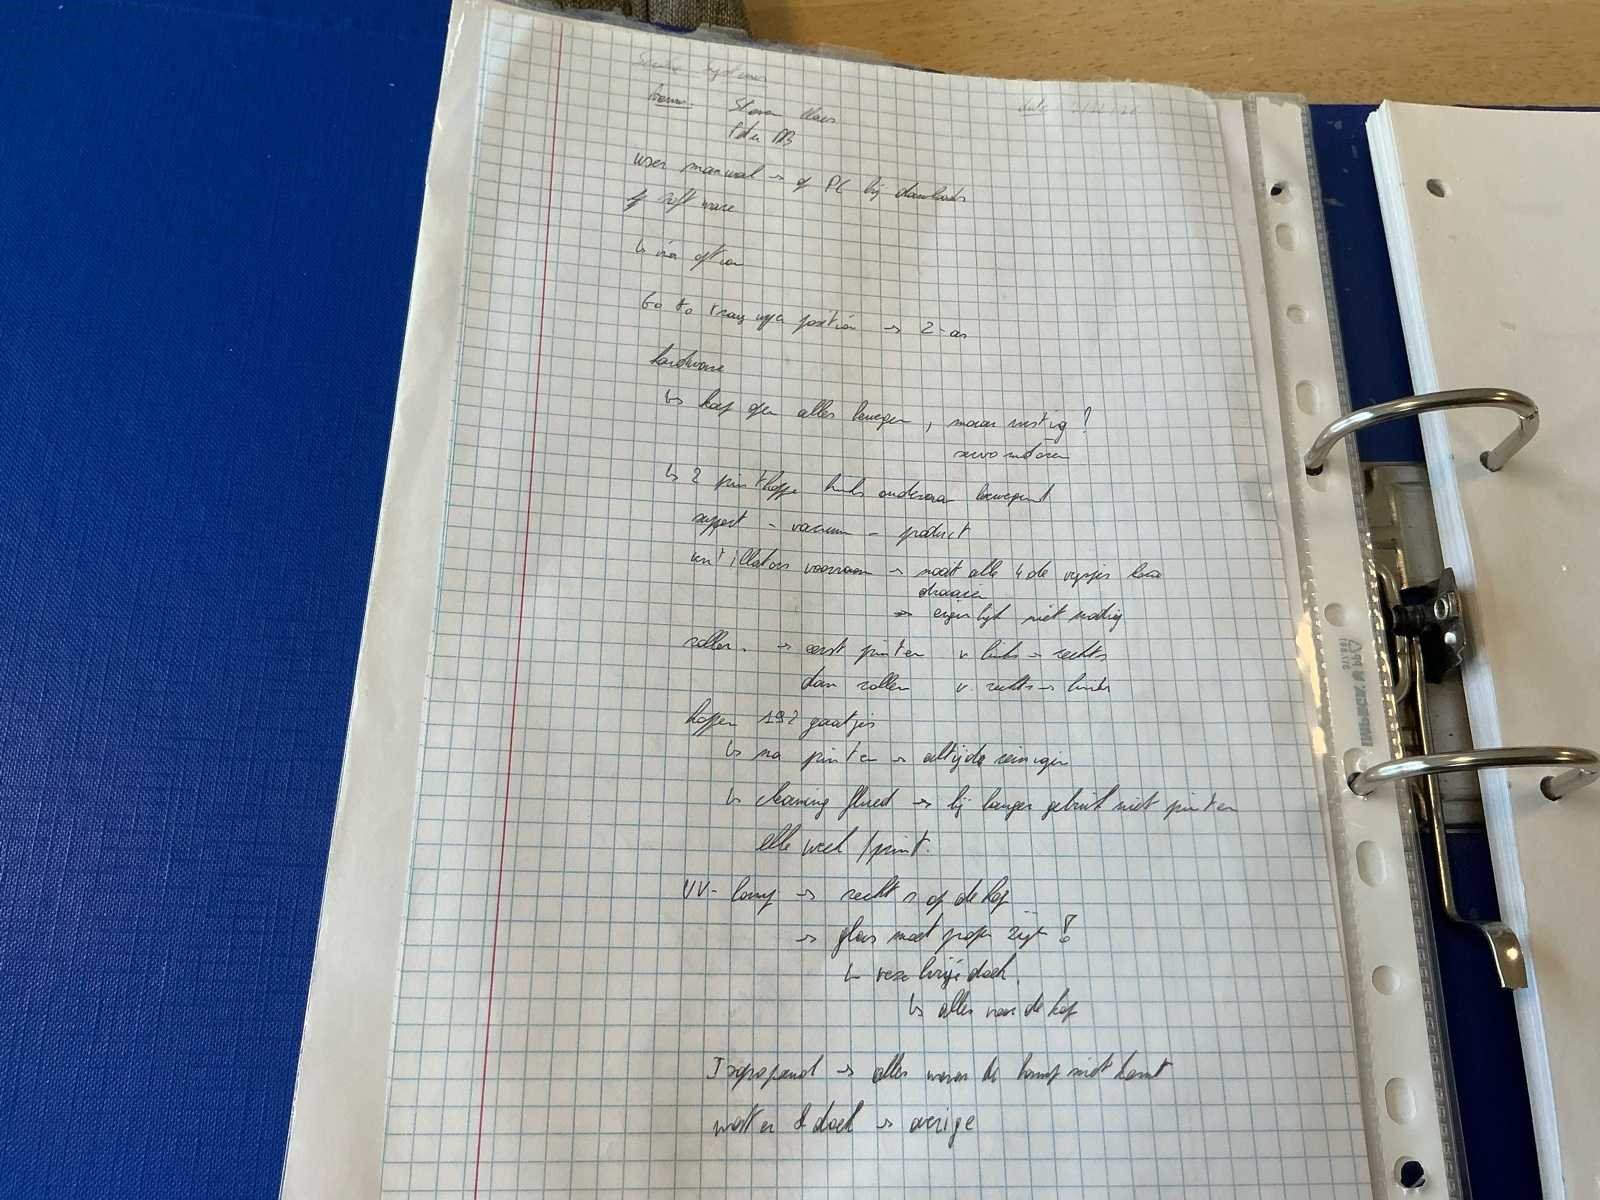 date
Steven
user manual → of PC bij downloads
of software
↳ via option
Go to tray upper position → Z-as
hardware
↳ kap open alles bewegen, maar rustig!
servo motoren
↳ 2 printkoppen links onderaan bewegend
support - vacuum - product
ventillators vooraan → nooit alle 4 de vijsjes los
draaien
→ eigenlijk niet nodig
roller → eerst printen v links → rechts
dan rollen v. rechts → links
koppen 192 gaatjes
↳ na printen → altijd reinigen
↳ cleaning fluid → bij langer gebruik niet printen
elke week /print.
UV-lamp → rechts op de kop
→ glas moet proper zijn!
↳ doek.
↳ alles voor de kop
Isopropanol → alles waar de lamp niet komt
water & doek → overige